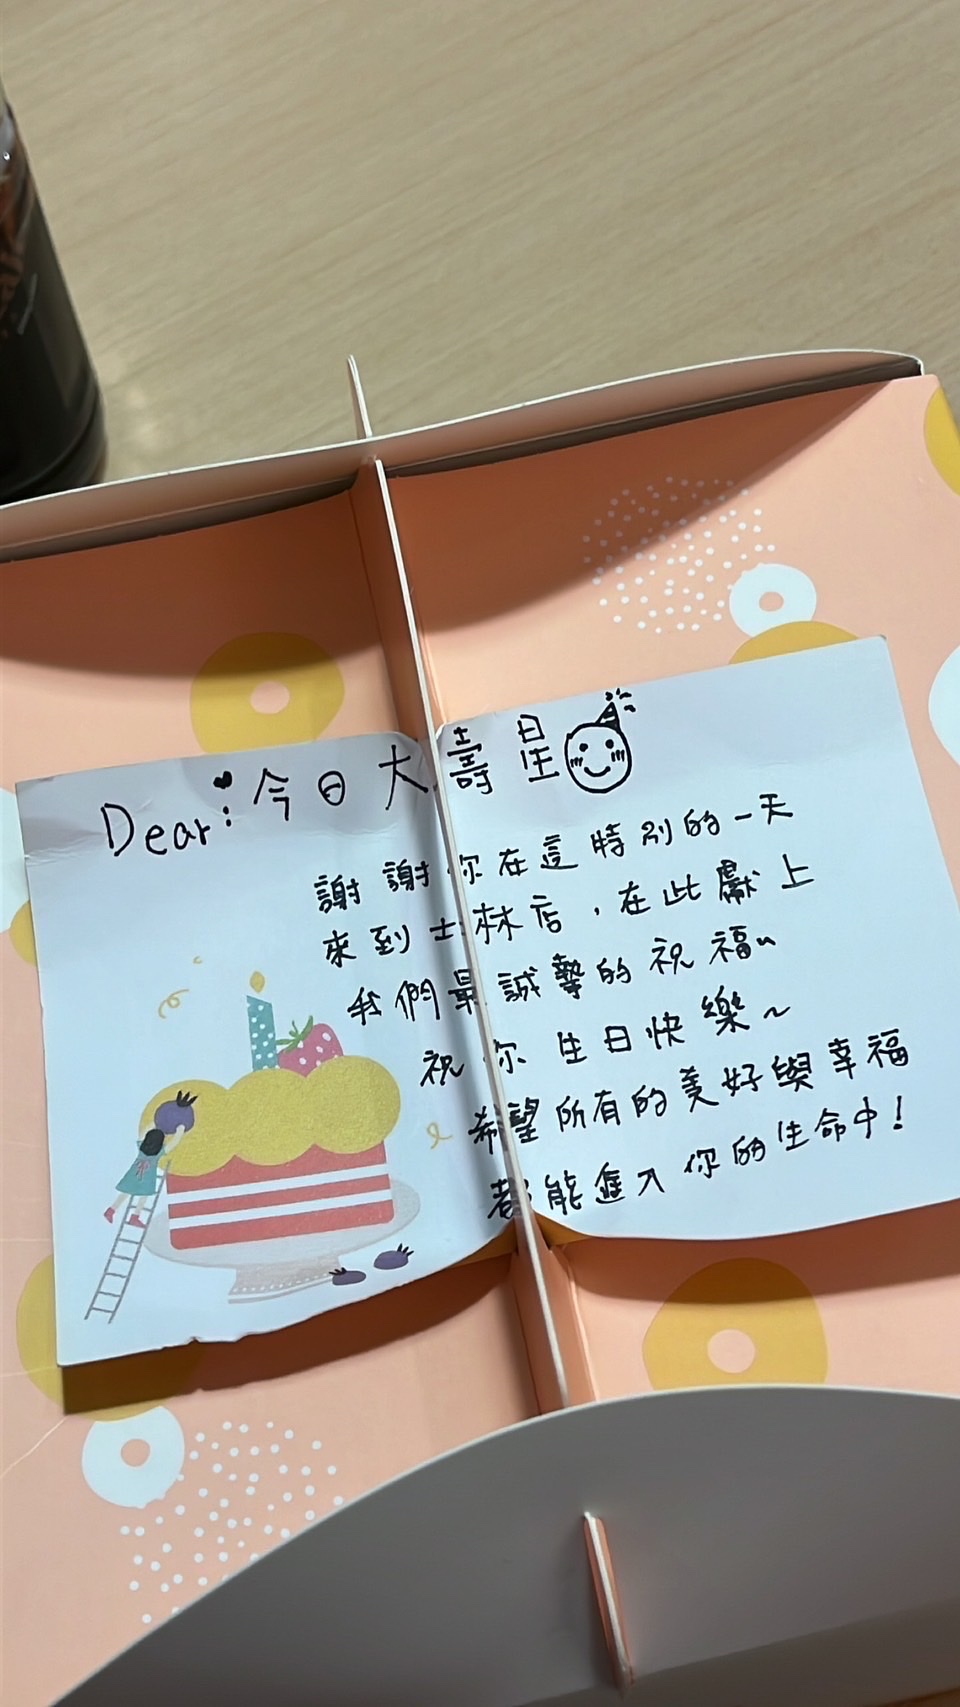 Dear：今日大壽星
謝謝你在這特別的一天
來到士林店，在此獻上
我們最誠摯的祝福~
祝你生日快樂~
希望所有的美好與幸福
都能進入你的生命中！